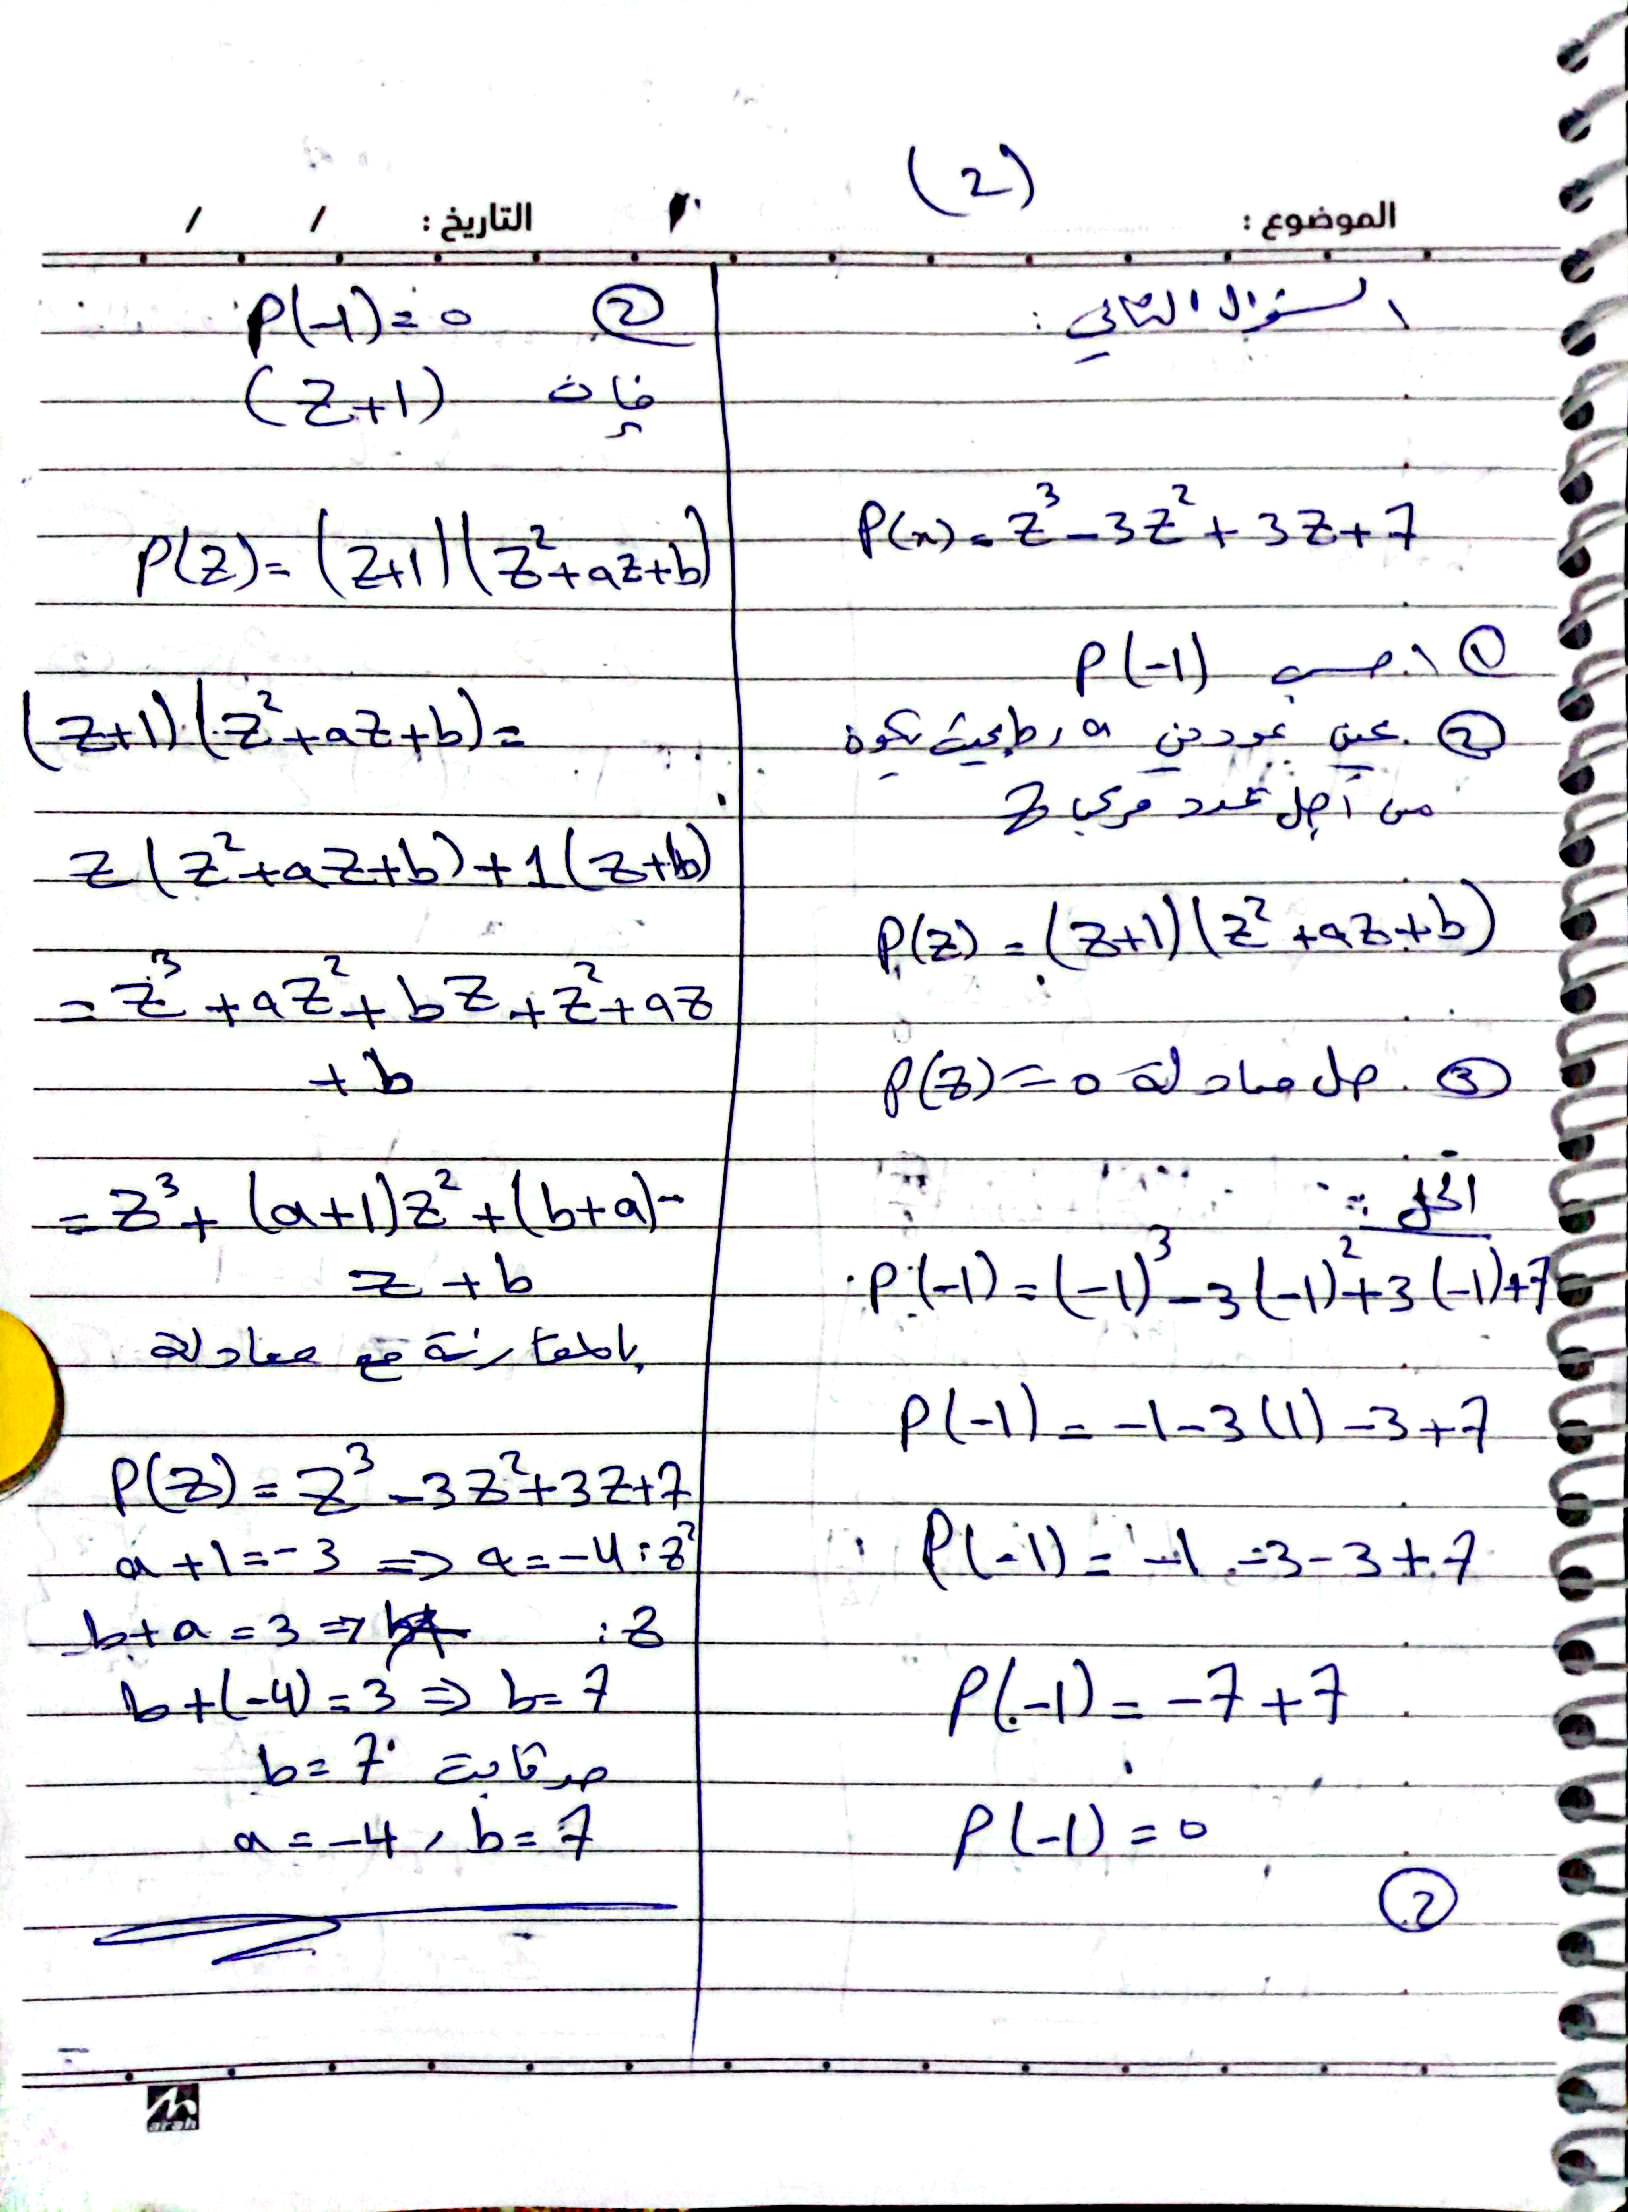 (2)
الموضوع :
التاريخ : / /
السؤال الثاني :
P(x) = z³ - 3z² + 3z + 7
① احسب P(-1)
② عين عددين a و b بحيث يكون
من أجل عدد مركب z
P(z) = (z+1)(z² + az + b)
③ حل معادلة P(z) = 0
الحل :
P(-1) = (-1)³ - 3(-1)² + 3(-1) + 7
P(-1) = -1 - 3(1) - 3 + 7
P(-1) = -1 - 3 - 3 + 7
P(-1) = -7 + 7
P(-1) = 0
②
② P(-1) = 0
فإن (z+1)
P(z) = (z+1)(z² + az + b)
(z+1)(z² + az + b) =
z(z² + az + b) + 1(z + b)
= z³ + az² + bz + z² + az
+ b
= z³ + (a+1)z² + (b+a)-
z + b
بالمقارنة مع معادلة
P(z) = z³ - 3z² + 3z + 7
a + 1 = -3 ⇒ a = -4 : z²
b + a = 3 ⇒ : z
b + (-4) = 3 ⇒ b = 7
b = 7
a = -4 , b = 7
arah